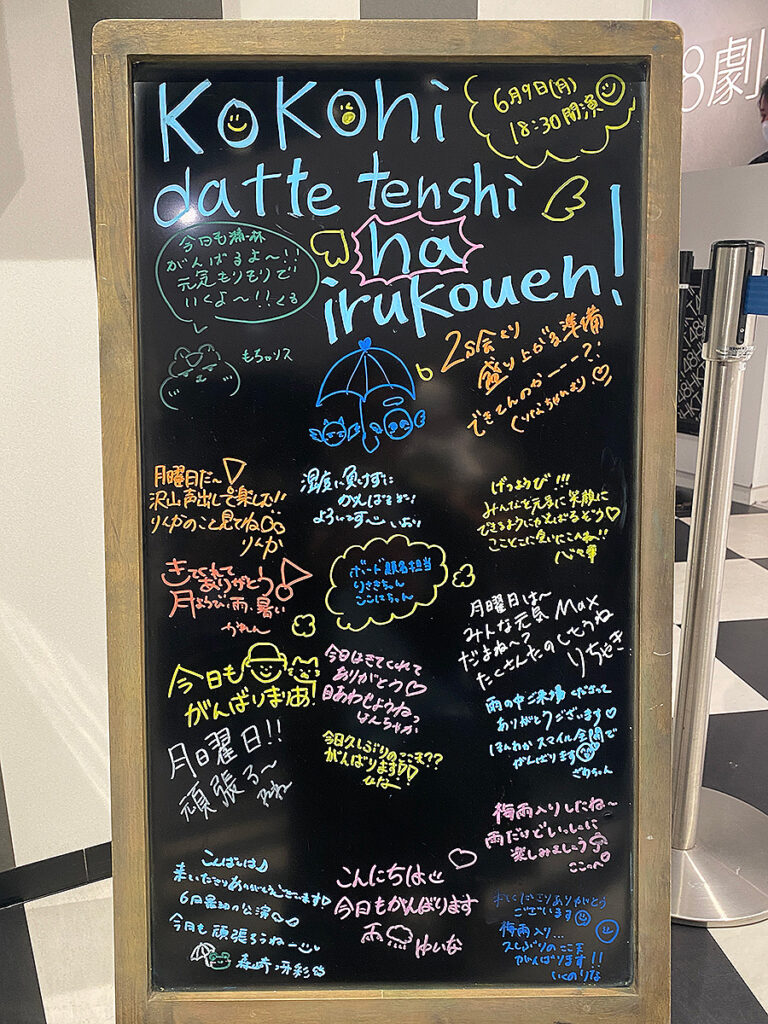 Kokohi
6月9日(月)
18:30開演
datte tenshi
ha
irukouen!
今日も精一杯
がんばるよ〜!!
元気もりもりで
いくよ〜!!くる
もちゃリス
2s会より
盛り上がる準備
できてんのかーーー?!
月曜日だ〜!
沢山声出して楽しむ!!
りんかのこと見てね
りんか
湿度に負けずに
がんばるぞ!
いおり
げつようび!!!
みんなを元気に笑顔に
できるようにがんばるぞう♡
きてくれて
ありがとう!
月ようび、雨、暑い
かれん
ボード顔名担当
りさきちゃん
ここにちゃん
月曜日は〜
みんな元気Max
だよね〜?
たくさんたのしもうね
りちゃき
今日も
がんばりまりあ!
今日はきてくれて
ありがとう♡
目あわせようねっ
けんちゃか
雨の中ご来場くださって
ありがとうございます♡
ほんわかスマイル全開で
がんばります
ざわちゃん
月曜日!!
頑張る〜
今日久しぶりのここ天??
がんばります♡♡
ひな
梅雨入りしたね〜
雨だけどいっしょに
楽しみましょう
ここに
こんばんは♪
来ていただきありがとうございます♡
6月最初の公演
今日も頑張ろうね〜
森﨑冴彩
こんにちは
今日もがんばります
雨 ゆいな
ありがとう
ございます
梅雨入り...
久しぶりのここ天
がんばります!!
いくのりな
8劇